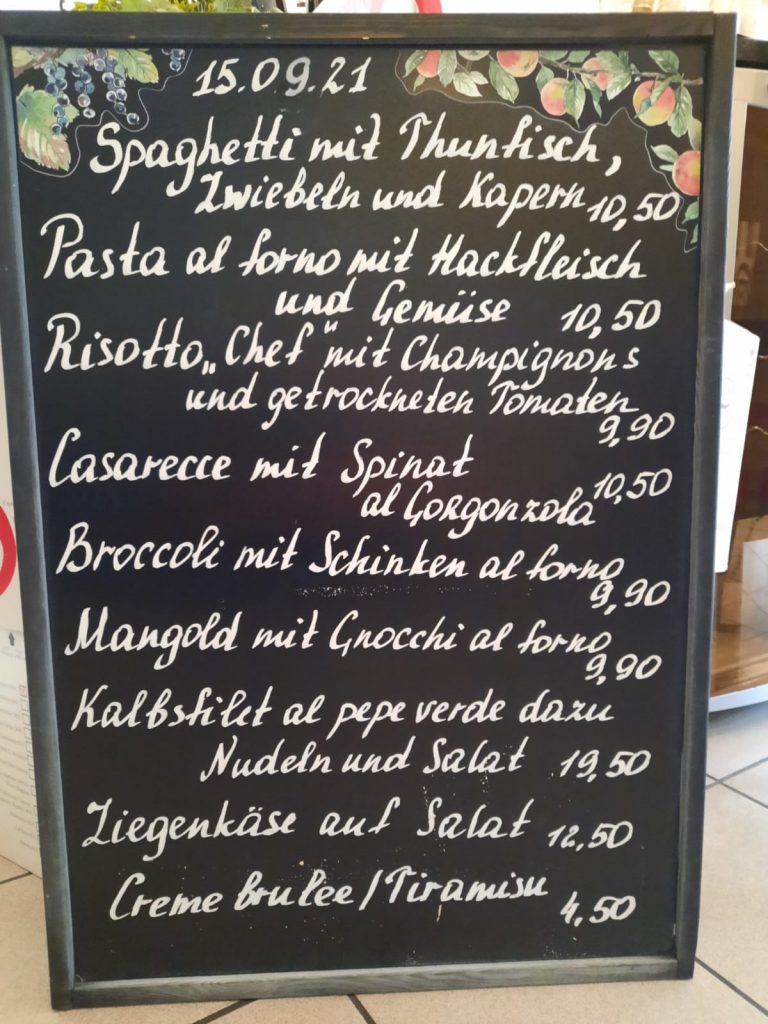 15.09.21
Spaghetti mit Thunfisch,
Zwiebeln und Kapern 10,50
Pasta al forno mit Hackfleisch
und Gemüse 10,50
Risotto „Chef" mit Champignons
und getrockneten Tomaten
9,90
Casarecce mit Spinat
al Gorgonzola 10,50
Broccoli mit Schinken al forno
9,90
Mangold mit Gnocchi al forno
9,90
Kalbsfilet al pepe verde dazu
Nudeln und Salat 19,50
Ziegenkäse auf Salat 12,50
Creme brulèe / Tiramisu
4,50